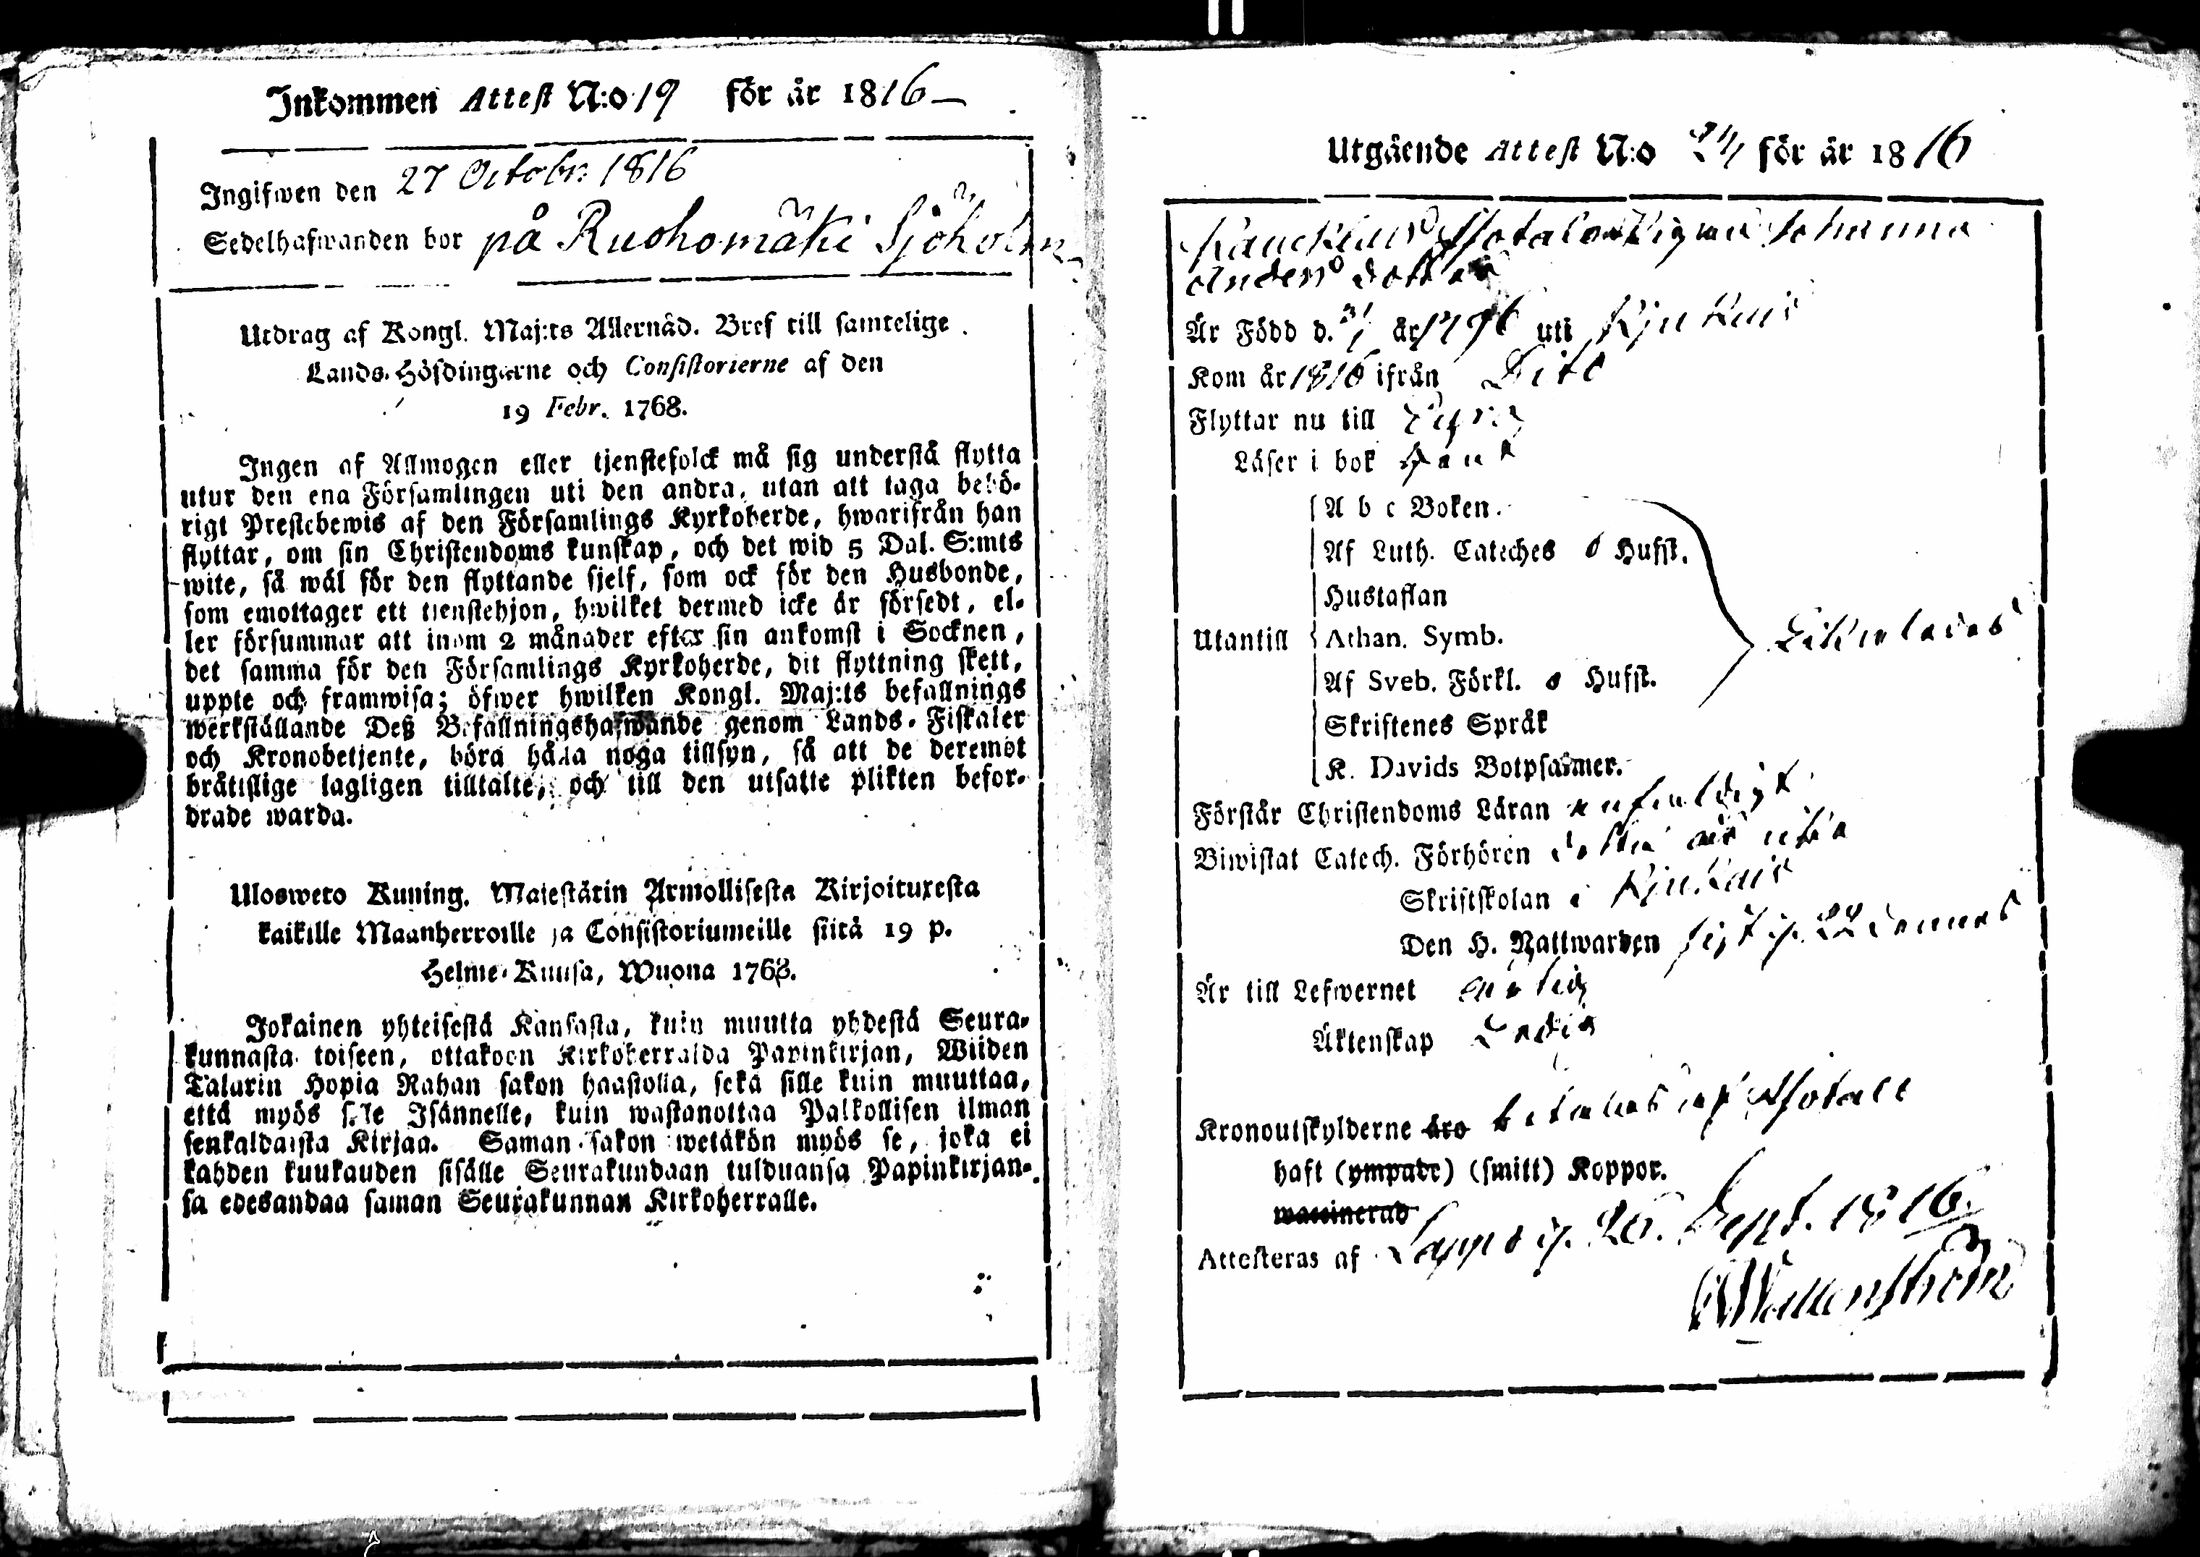 Inkommen Attest N:o 19 för år 1816
Ingifwen den 27 Octobr: 1816
Sedelhafwanden bor på Ruohomäki Sjöholm
Utdrag af Kongl. Maj:ts Allernåd. Bref till samtelige
Lands-Höfdingarne och Consistorierne af den
19 Febr. 1768.
Ingen af Allmogen eller tjenstefolck må sig understå flytta
utur den ena Församlingen uti den andra, utan att taga behö-
rigt Prestebewis af den Församlings Kyrkoherde, hwarifrån han
flyttar, om sin Christendoms kunskap, och det wid 5 Dal. S:mts
wite, så wäl för den flyttande sjelf, som ock för den Husbonde,
som emottager ett tienstehjon, hwilket dermed icke är försedt, el-
ler försummar att inom 2 månader efter sin ankomst i Socknen,
det samma för den Församlings Kyrkoherde, dit flyttning skett,
uppte och framwisa; öfwer hwilken Kongl. Maj:ts befallnings
werkställande Deß Befallningshafwande genom Lands-Fiskaler
och Kronobetjente, böra hålla noga tillsyn, så att de deremot
bråtislige lagligen tilltalte, och till den utsatte plikten befor-
drade warda.
Ulosweto Kuning. Majestätin Armollisesta Kirjoituxesta
kaikille Maanherroille ja Consistoriumeille siitä 19 p.
Helme-Kuusa, Wuona 1768.
Jokainen yhteisestä Kansasta, kuin muutta yhdestä Seura-
kunnasta toiseen, ottakoon Kirkoherralda Papinkirjan, Wiiden
Talarin Hopia Rahan sakon haastolla, sekä sille kuin muuttaa,
että myös sille Isännelle, kuin wastanottaa Palkollisen ilman
senkaldaista Kirjaa. Saman sakon wetäkön myös se, joka ei
kahden kuukauden sisälle Seurakundaan tulduansa Papinkirjan-
sa edesandaa saman Seurakunnan Kirkoherralle.
Utgående Attest N:o 24 för år 1816
Johanna
Anders dotter
Är Född d. år 1796 uti Kjukais
Kom år 1816 ifrån Dito
Flyttar nu till
Läser i bok
A b c Boken.
Af Luth. Cateches o Hufst.
Hustaflan
Utantill Athan. Symb.
Af Sveb. Förkl. o Hufst.
Skriftenes Språk
K. Davids Botpsalmer.
Förstår Christendoms Läran enfaldigt
Biwistat Catech. Förhören detta år
Skriftskolan i Kjukais
Den H. Nattwarden sist d. 22 dennes
Är till Lefwernet ärlig
Äktenskap Ledig
Kronoutskylderne äro betalas af
haft (ympade) (smitt) Koppor.
waccinerad
Attesteras af Lappo d. 26. Sept. 1816.
Wallenström